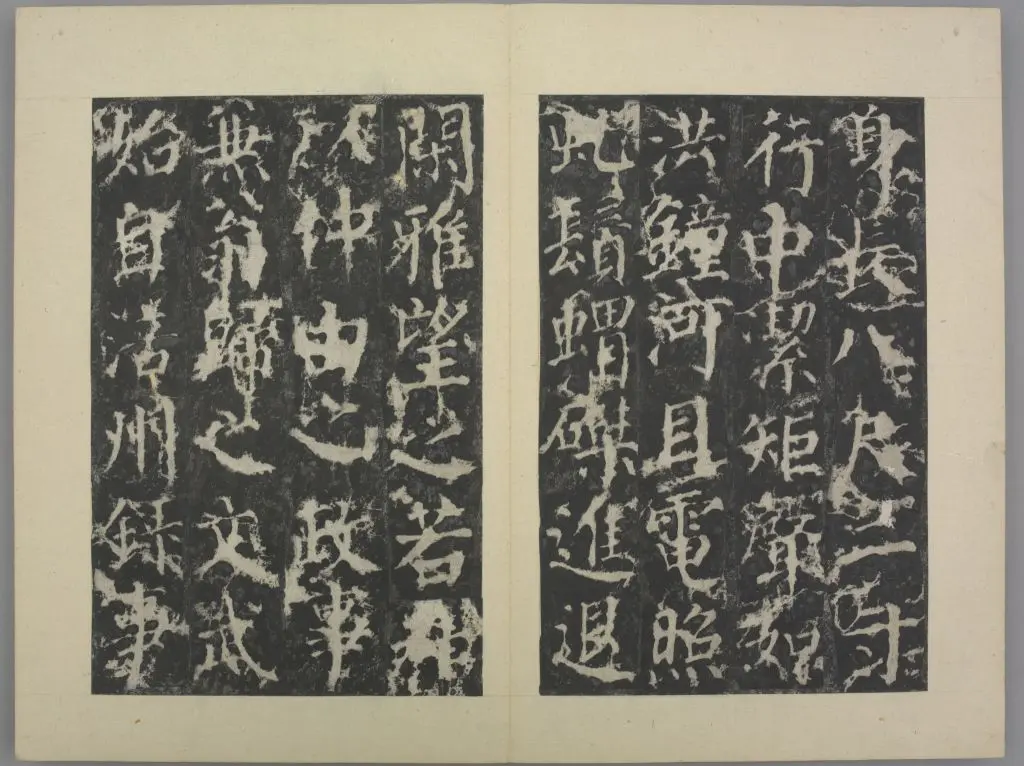 身長八尺二寸
行中絜矩聲如
洪鐘河目電照
虬鬚蝟磔進退
閑雅望之若神
以仲由之政事
兼翁歸之文武
始自涪州錄事